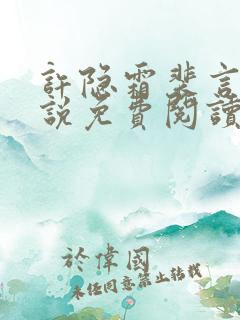 許隐霜裴言
說免費閱讀
於偉國
未任同意禁止转载